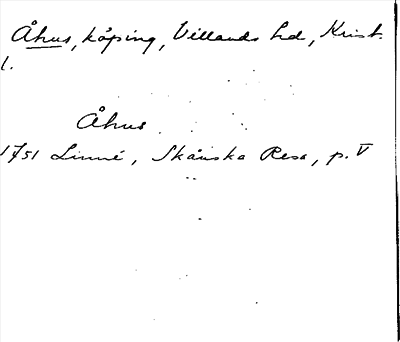 Åhus, köping, Villands hd, Krist.
l.
Åhus
1751 Linné, Skånska Resa, p. V